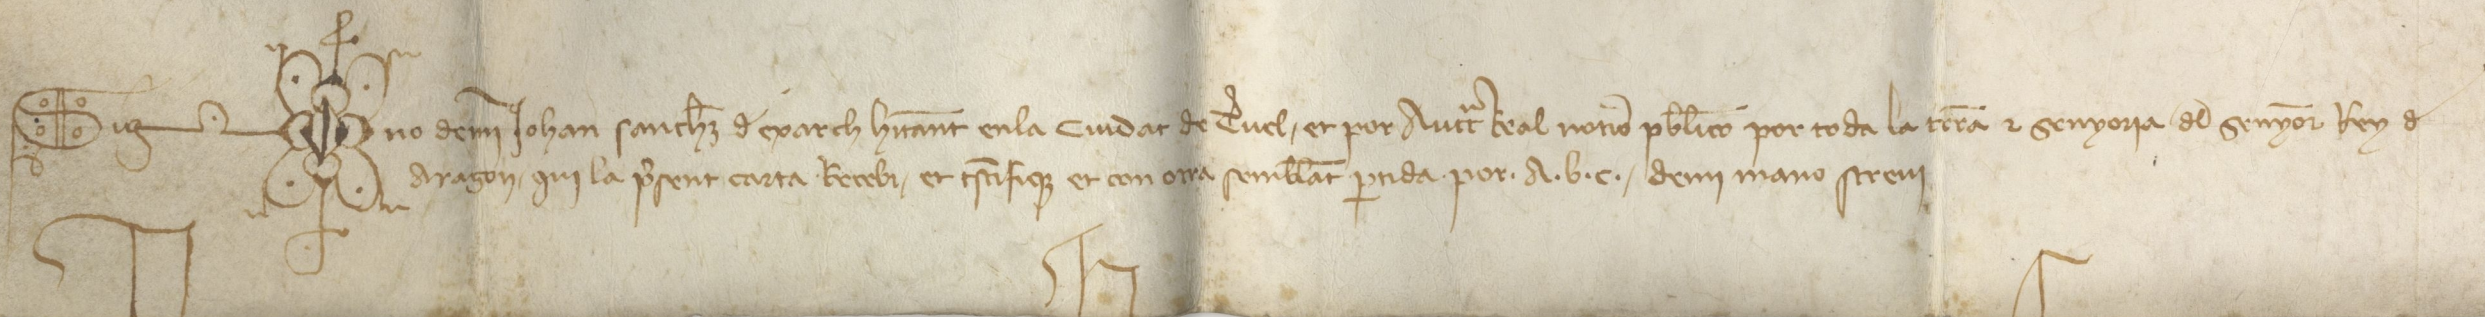 Sig no de mi Johan sanchƺ d exarch hitant en la Ciudat de Tuel, et por Auctt Real notio publico por toda la trra z senyoria dl senyor Rey d
Aragon, qui la prsent carta Recebi, et tstifiqƺ et con otra semblant ptida por .A.b.c., de mi mano screui